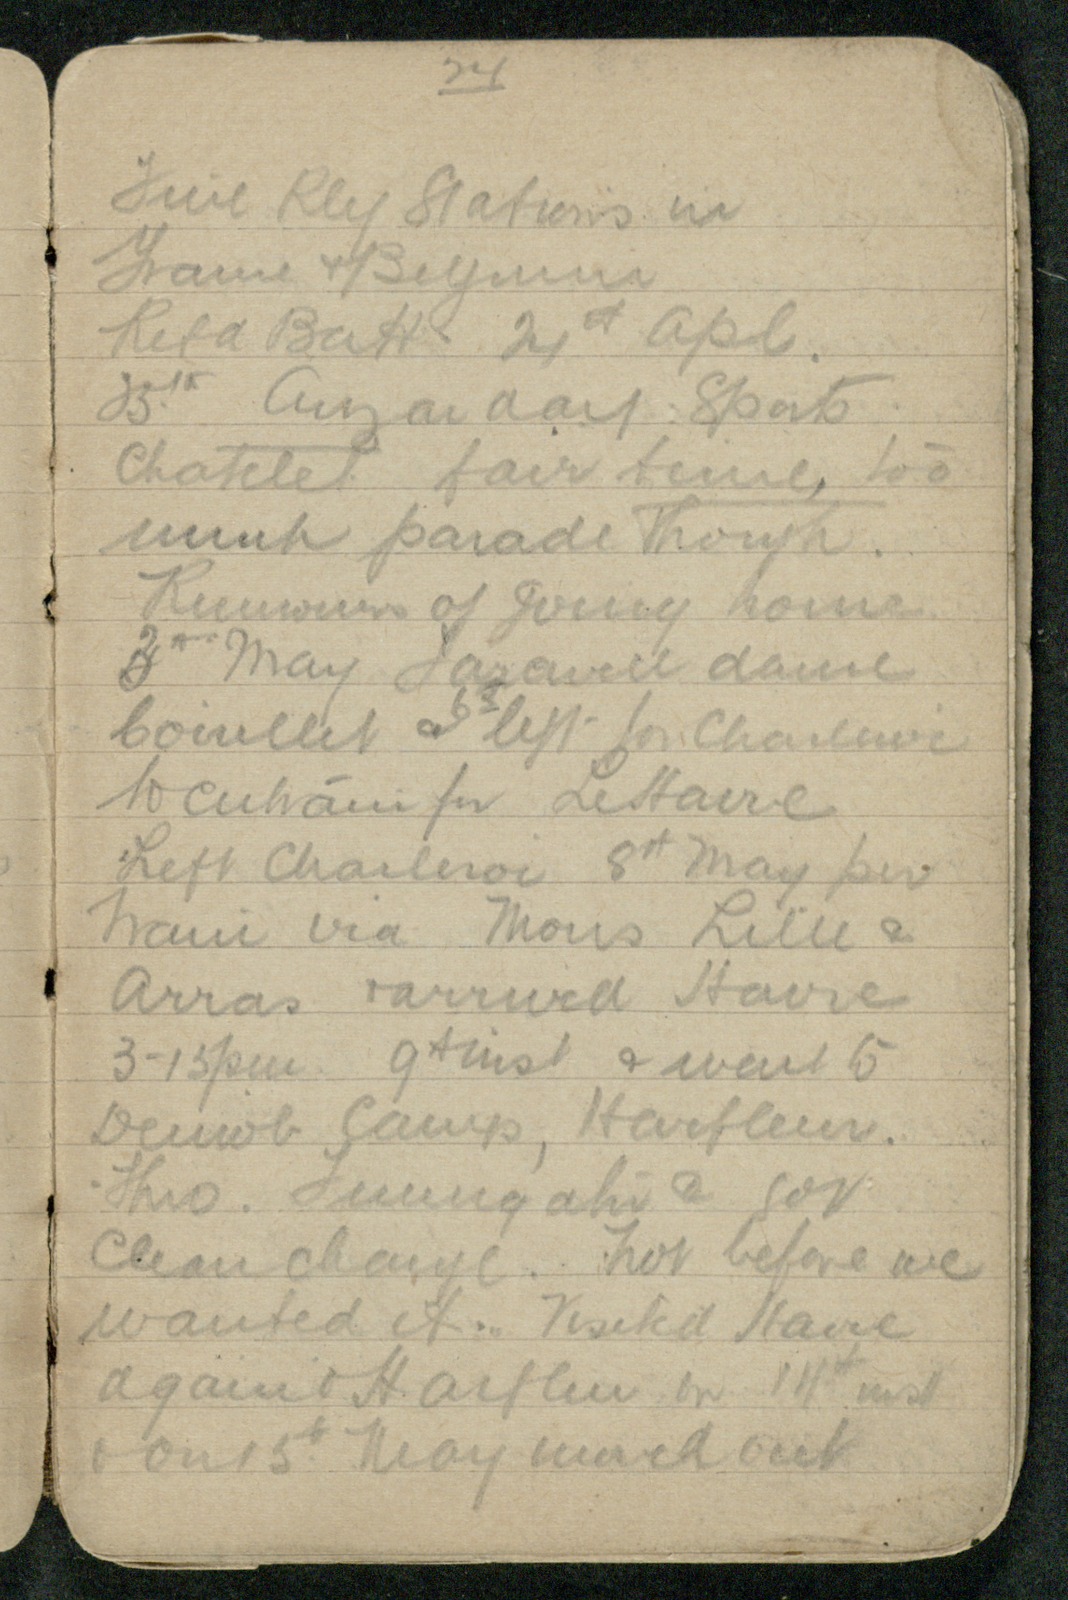 24
Five Rly Stations in
France + Belgium
Rejd Batt. 21st Apl.
25th Anzac day Sports
Chatelet fair time, too
much parade though.
Rumours of going home
May Farewell dance
& 6th left for Charleroi
to entrain for Le Havre
Left Charleroi 8th May per
train via Mons Lille &
Arras + arrived Havre
3-15pm 9th inst & went to
Demob Camp, Harfleur.
Thro. &  got
Clean change. Not before we
wanted it. Visited Havre
again & Harfleur on 14th inst
& on 15th May moved out